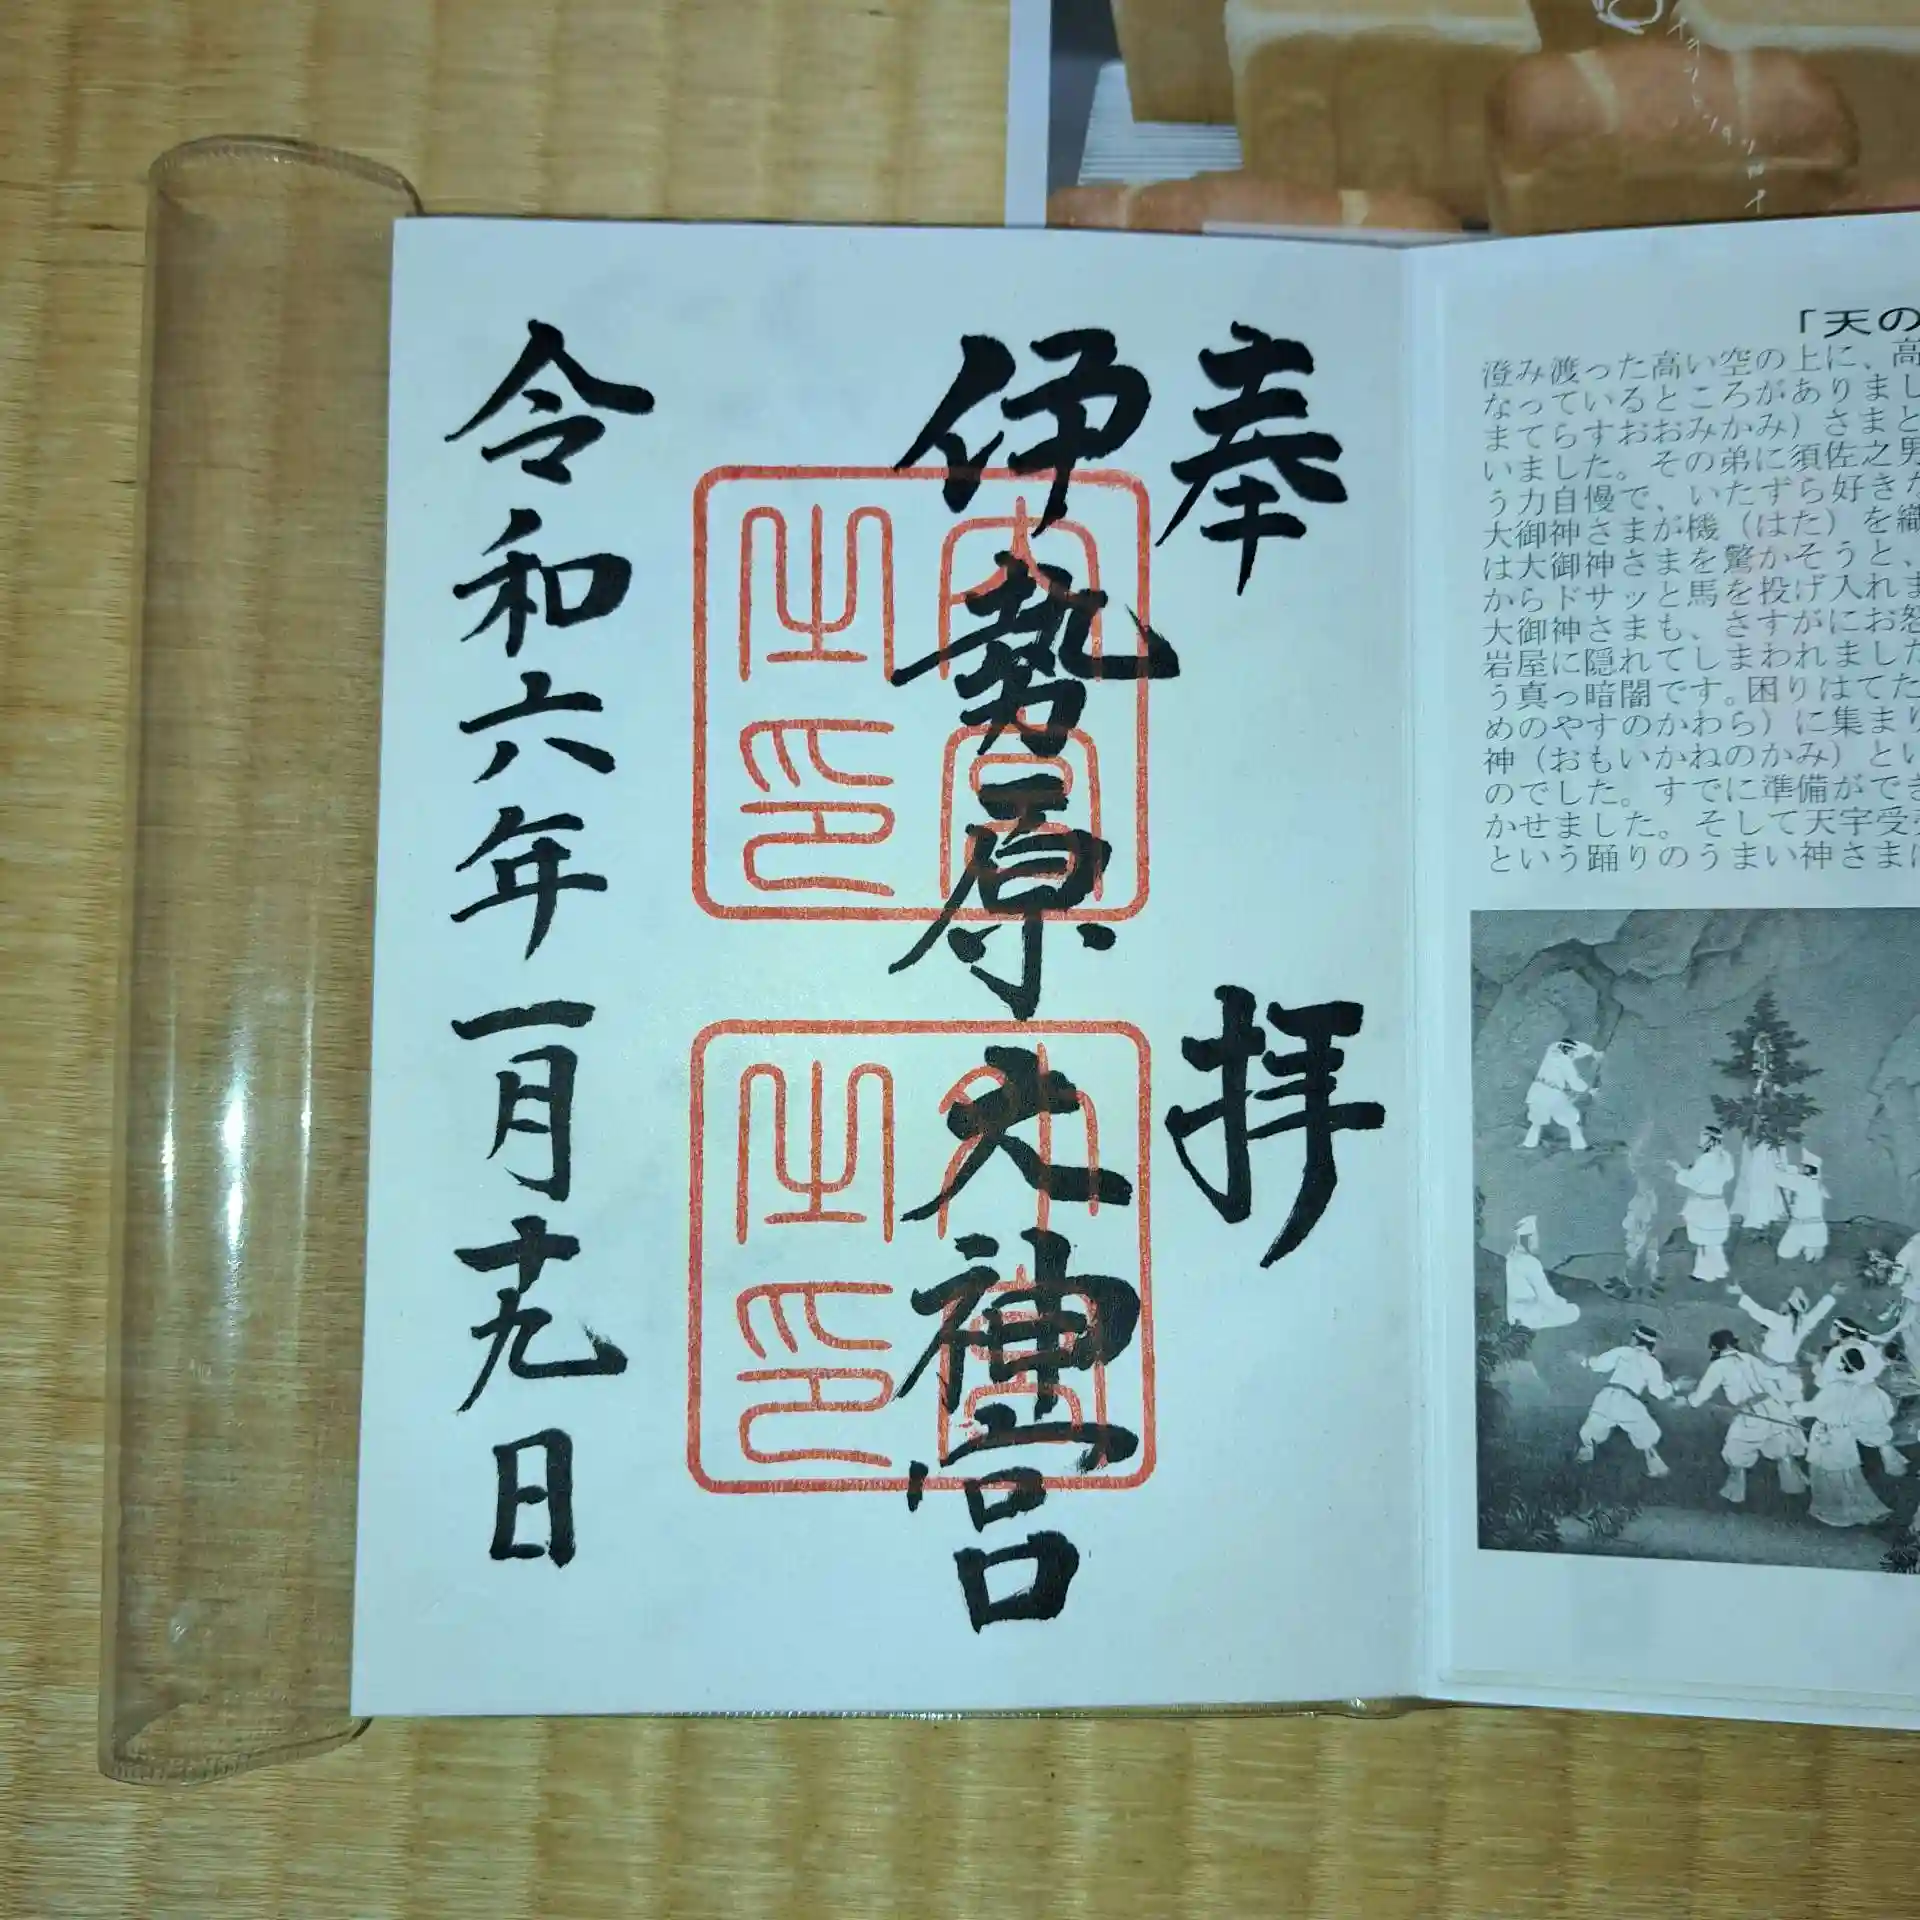 奉拝
伊勢原大神宮
令和六年一月十九日
内宮
之印
外宮
之印
「天の
澄み渡った高い空の上に、高
なっているところがありまし
まてらすおおみかみ）さまと
いました。その弟に須佐之男
う力自慢で、いたずら好きな
大御神さまが機（はた）を織
は大御神さまを驚かそうと、
からドサッと馬を投げ入れま
大御神さまも、さすがにお怒
岩屋に隠れてしまわれました
う真っ暗闇です。困りはてた
めのやすのかわら）に集まり
神（おもいかねのかみ）とい
のでした。すでに準備ができ
かせました。そして天宇受
という踊りのうまい神さまに